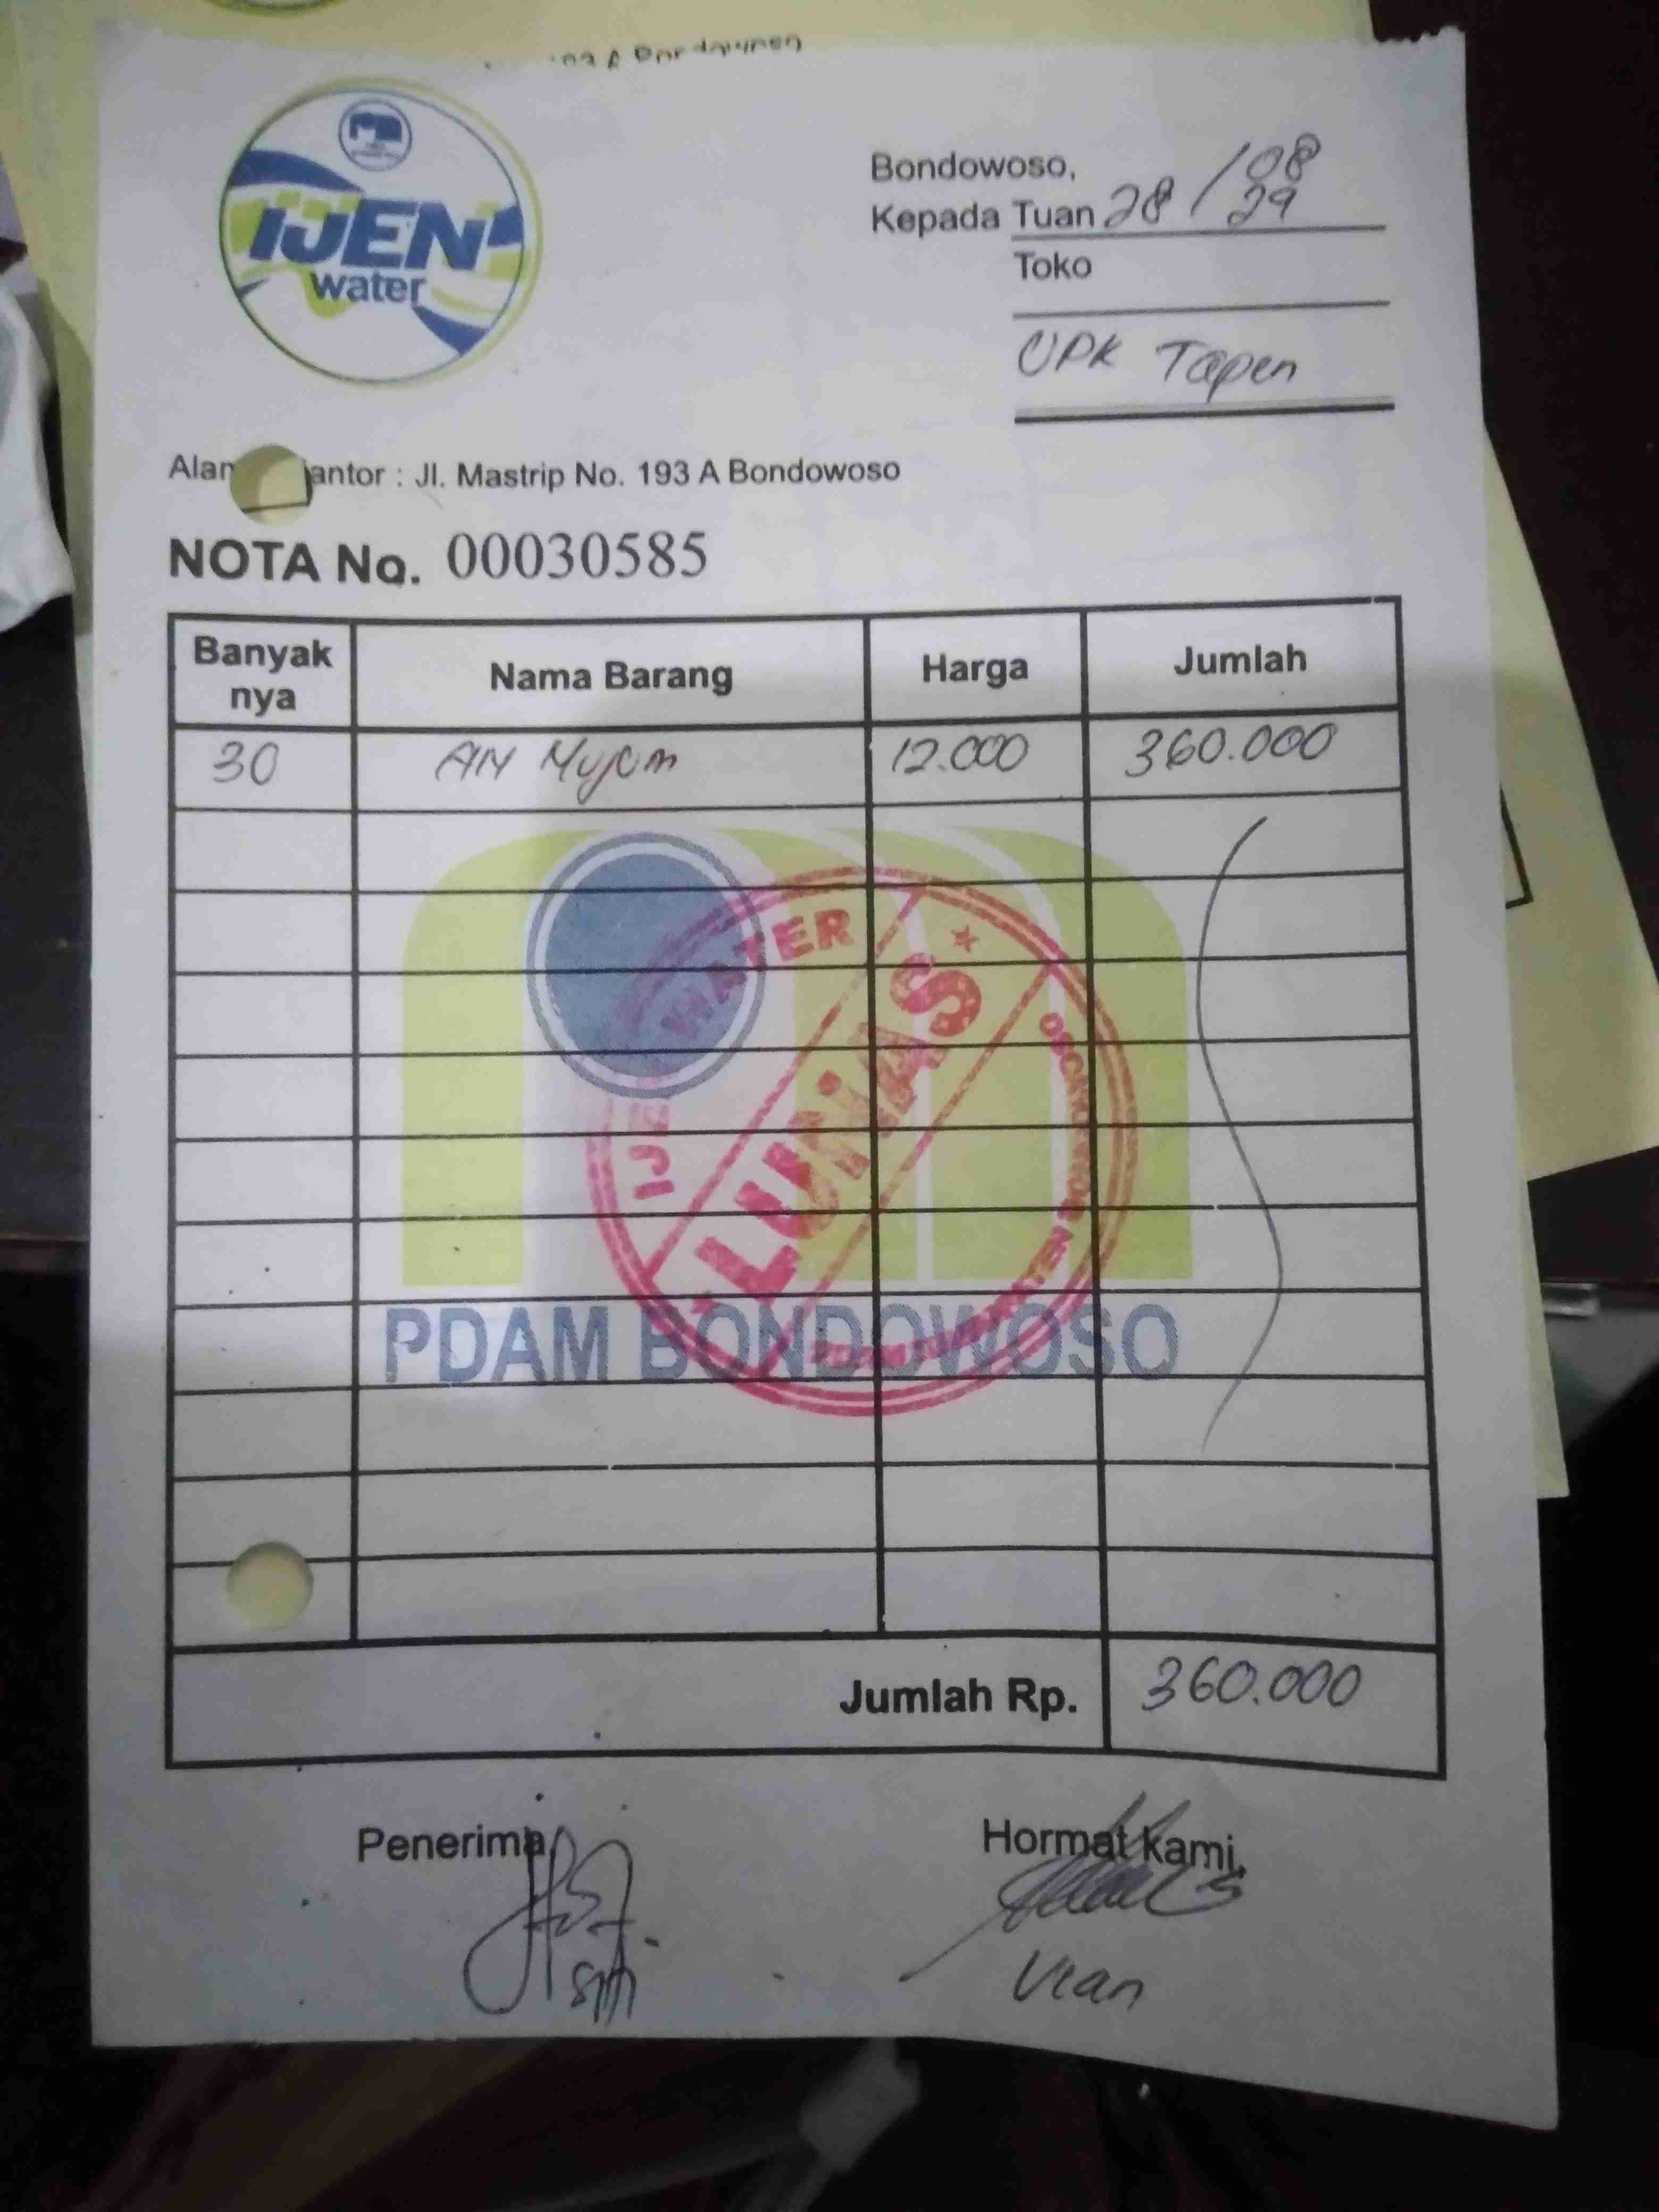 IJEN
water
Bondowoso,
28/08
Kepada Tuan 29
Toko
UPK Tapen
Alan antor : Jl. Mastrip No. 193 A Bondowoso
NOTA No. 00030585
Banyak nya Nama Barang Harga Jumlah
30 12.000 360.000
IJEN WATER
LUNAS
PDAM BONDOWOSO
Jumlah Rp. 360.000
Penerima
Hormat kami,
Vian